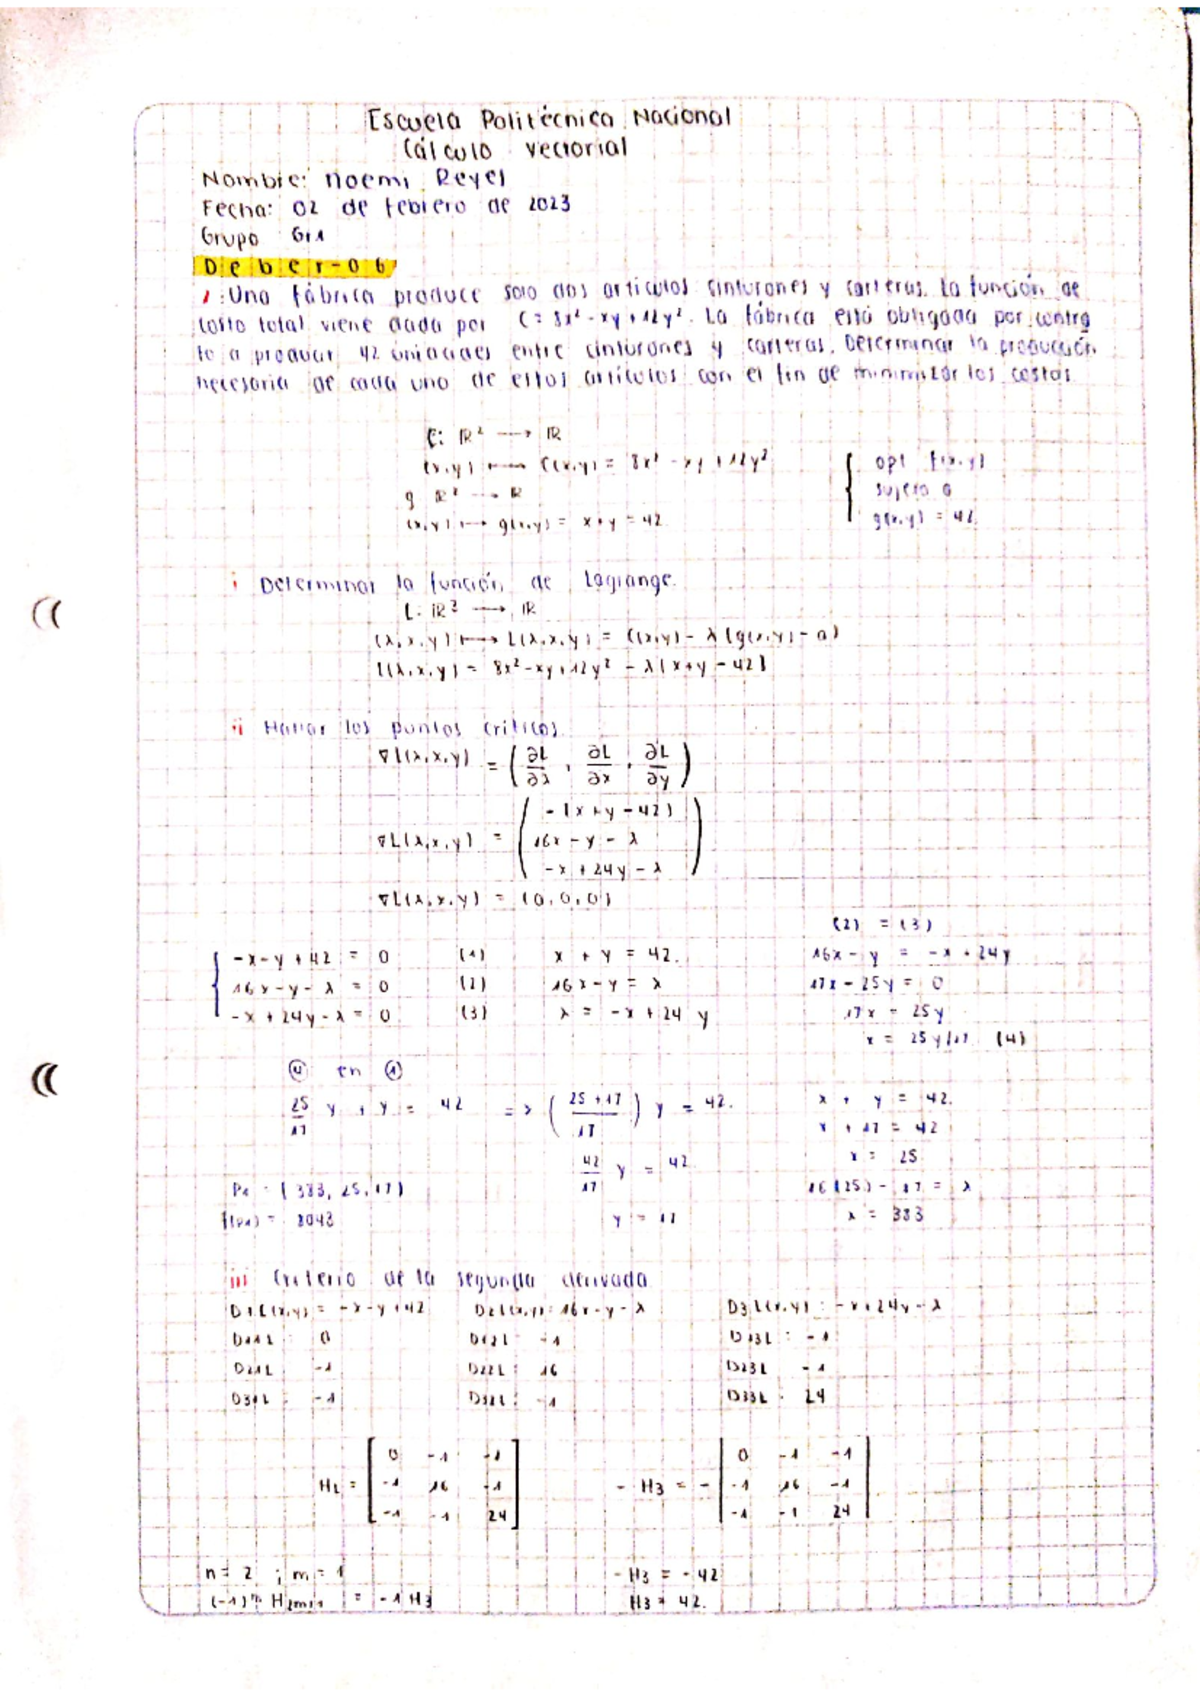 Escuela Politécnica Nacional
Cálculo Vectorial
Nombre: Noemi Reyes
Fecha: 02 de febrero de 2023
Grupo Gr1
Deber-06
1. Una fábrica produce solo dos artículos cinturones y carteras. La función de
costo total viene dada por C = 8x² - xy + 12y². La fábrica está obligada por contra
to a producir 42 unidades entre cinturones y carteras. Determinar la producción
necesaria de cada uno de estos artículos con el fin de minimizar los costos
C: ℝ² → ℝ
(x,y) ↦ C(x,y) = 8x² - xy + 12y²
g ℝ² → ℝ
(x,y) ↦ g(x,y) = x+y = 42
opt f(x,y)
sujeto a
g(x,y) = 42
i Determinar la función de Lagrange.
L: ℝ³ → ℝ
(λ,x,y) ↦ L(λ,x,y) = C(x,y) - λ(g(x,y) - a)
L(λ,x,y) = 8x² - xy + 12y² - λ(x+y-42)
ii Hallar los puntos críticos
∇L(λ,x,y) = (∂L/∂λ, ∂L/∂x, ∂L/∂y)
-(x+y-42)
∇L(λ,x,y) = 16x - y - λ
-x + 24y - λ
∇L(λ,x,y) = (0,0,0)
-x-y+42 = 0 (1) x + y = 42.
16x-y-λ = 0 (2) 16x-y = λ
-x+24y-λ = 0 (3) λ = -x+24y
(2) = (3)
16x - y = -x + 24y
17x - 25y = 0
17x = 25y
x = 25y/17 (4)
④ en ①
25/17 y + y = 42 => (25+17/17) y = 42.
42/17 y = 42
y = 17
x + y = 42.
x + 17 = 42
x = 25
16(25) - 17 = λ
λ = 383
P1 = (383, 25, 17)
f(P1) = 8043
iii Criterio de la segunda derivada
D1L(x,y) = -x-y+42 D2L(x,y): 16x-y-λ D3L(x,y): -x+24y-λ
D11L: 0 D12L: -1 D13L: -1
D21L -1 D22L: 16 D23L -1
D31L: -1 D32L: -1 D33L: 24
0 -1 -1 0 -1 -1
HL = -1 16 -1 - H3 = - -1 16 -1
-1 -1 24 -1 -1 24
n = 2 ; m = 1 - H3 = -42
(-1)ᵐ H2m+1 = -1 H3 H3 = 42.